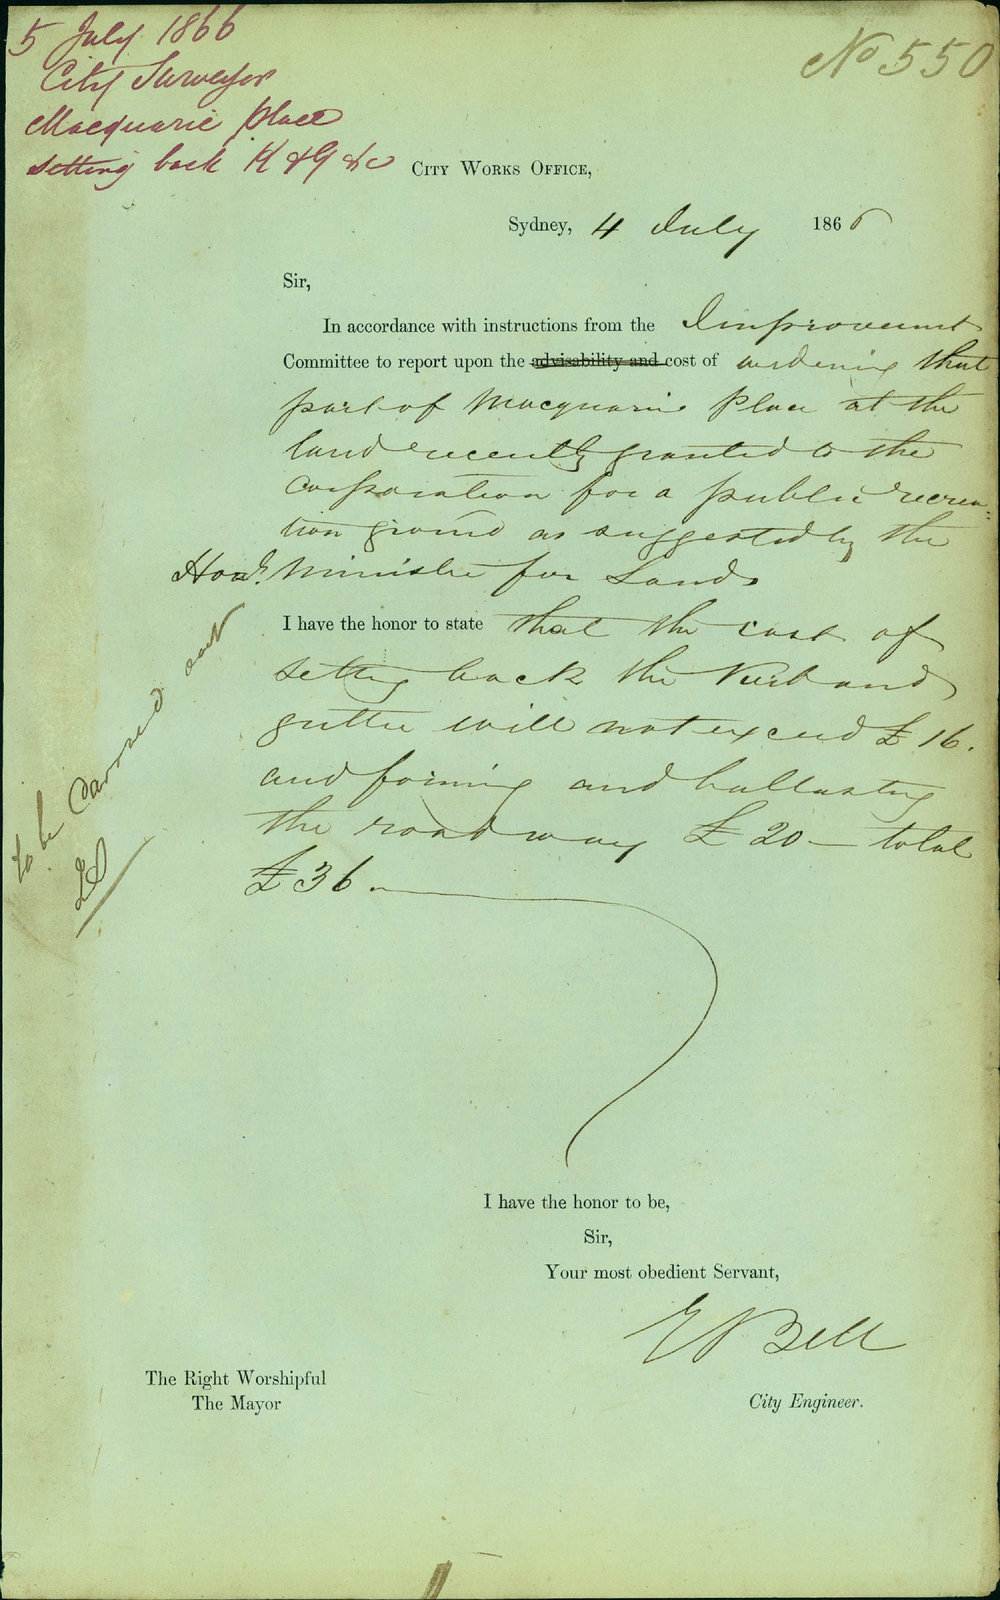 5 July 1866
City Surveyor
Macquarie place
setting back K & G &c
No 550
CITY WORKS OFFICE,
Sydney, 4 July 1866
Sir,
In accordance with instructions from the Improvement
Committee to report upon the advisability and cost of widening that
part of Macquarie Place at the
land recently granted to the
Corporation for a public recrea-
tion ground as suggested by the
Honl. Minister for Lands
I have the honor to state that the cost of
setting back the Kerb and
gutter will not exceed £16.
and forming and ballasting
the roadway £20 — total
£36.
to be carried out
I have the honor to be,
Sir,
Your most obedient Servant,
E Bell
City Engineer.
The Right Worshipful
The Mayor